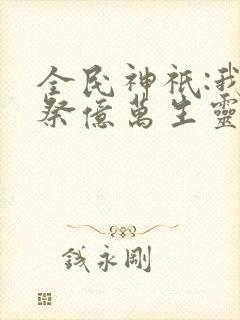 全民神祇:我
祭億萬生靈
錢永剛